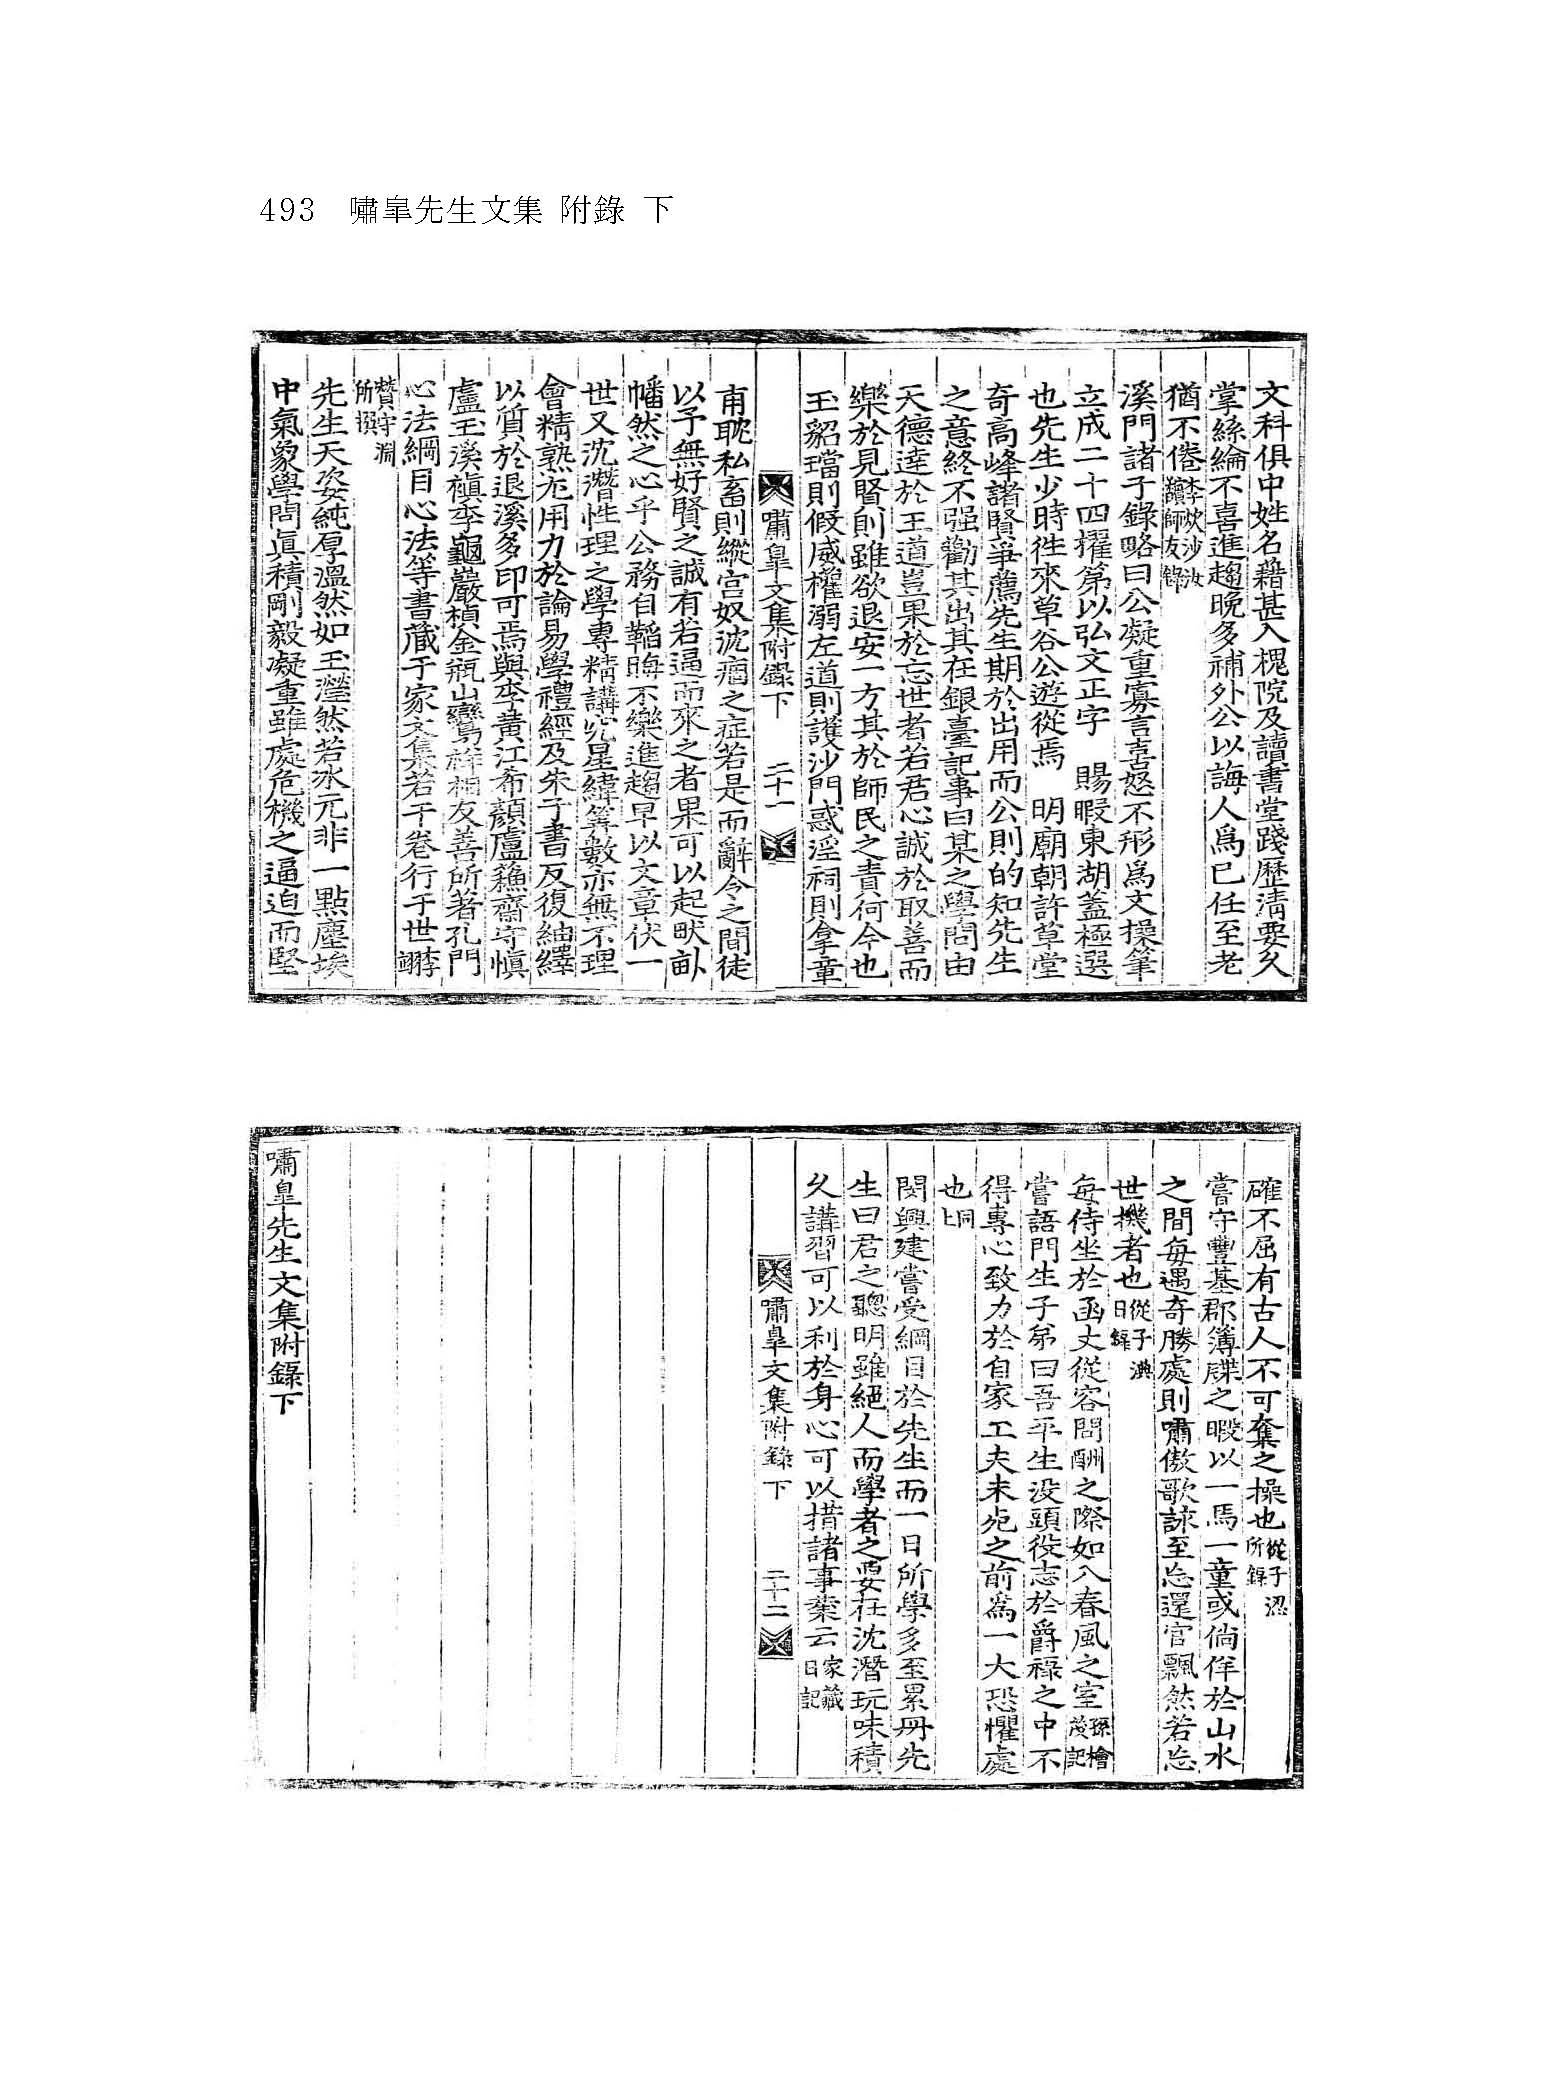 493 嘯皐先生文集 附錄 下
文科俱中姓名藉甚入槐院及讀書堂踐歷淸要久
掌絲綸不喜進趨晚多補外公以誨人爲己任至老
猶不倦
溪門諸子錄略曰公凝重寡言喜怒不形爲文操筆
立成二十四擢第以弘文正字 賜暇東湖蓋極選
也先生少時徃來草谷公遊從焉 明廟朝許草堂
奇高峰諸賢爭薦先生期於出用而公則的知先生
之意終不强勸其出其在銀臺記事曰某之學問由
天德達於王道豈果於忘世者若君心誠於取善而
樂於見賢則雖欲退安一方其於師民之責何今也
玉貂璫則假威權溺左道則護沙門惑淫祠則拿童
嘯皐文集附錄下 二十一
甫耽私畜則縱宮奴沈痼之症若是而辭令之間徒
以予無好賢之誠有若逼而來之者果可以起畎畝
幡然之心乎公務自韜晦不樂進趨早以文章伏一
世又沈潛性理之學專精講究星緯筭數亦無不理
會精熟尤用力於論易學禮經及朱子書反復紬繹
以質於退溪多印可焉與李黃江希顔盧蘓齋守愼
盧玉溪禛李龜巖楨金甁山鸞祥相友善所著孔門
心法綱目心法等書藏于家文集若干卷行于世
贊守淵
所撰
先生天姿純厚溫然如玉瀅然若氷元非一點塵埃
中氣象學問眞積剛毅凝重雖處危機之逼迫而堅
確不屈有古人不可奪之操也從子㴒
所錄
嘗守豐基郡簿牒之暇以一馬一童或倘佯於山水
之間每遇奇勝處則嘯傲歌詠至忘還官飄然若忘
世機者也從子㴣
日錄
每侍坐於函丈從容問酬之際如入春風之室孫檜
茂記
嘗語門生子弟曰吾平生没頭役志於爵祿之中不
得專心致力於自家工夫未死之前爲一大恐懼處
也同上
閔興建嘗受綱目於先生而一日所學多至累冊先
生曰君之聰明雖絕人而學者之要在沈潛玩味積
久講習可以利於身心可以措諸事業云家藏
日記
嘯皐文集附錄下 二十二
嘯皐先生文集附錄下